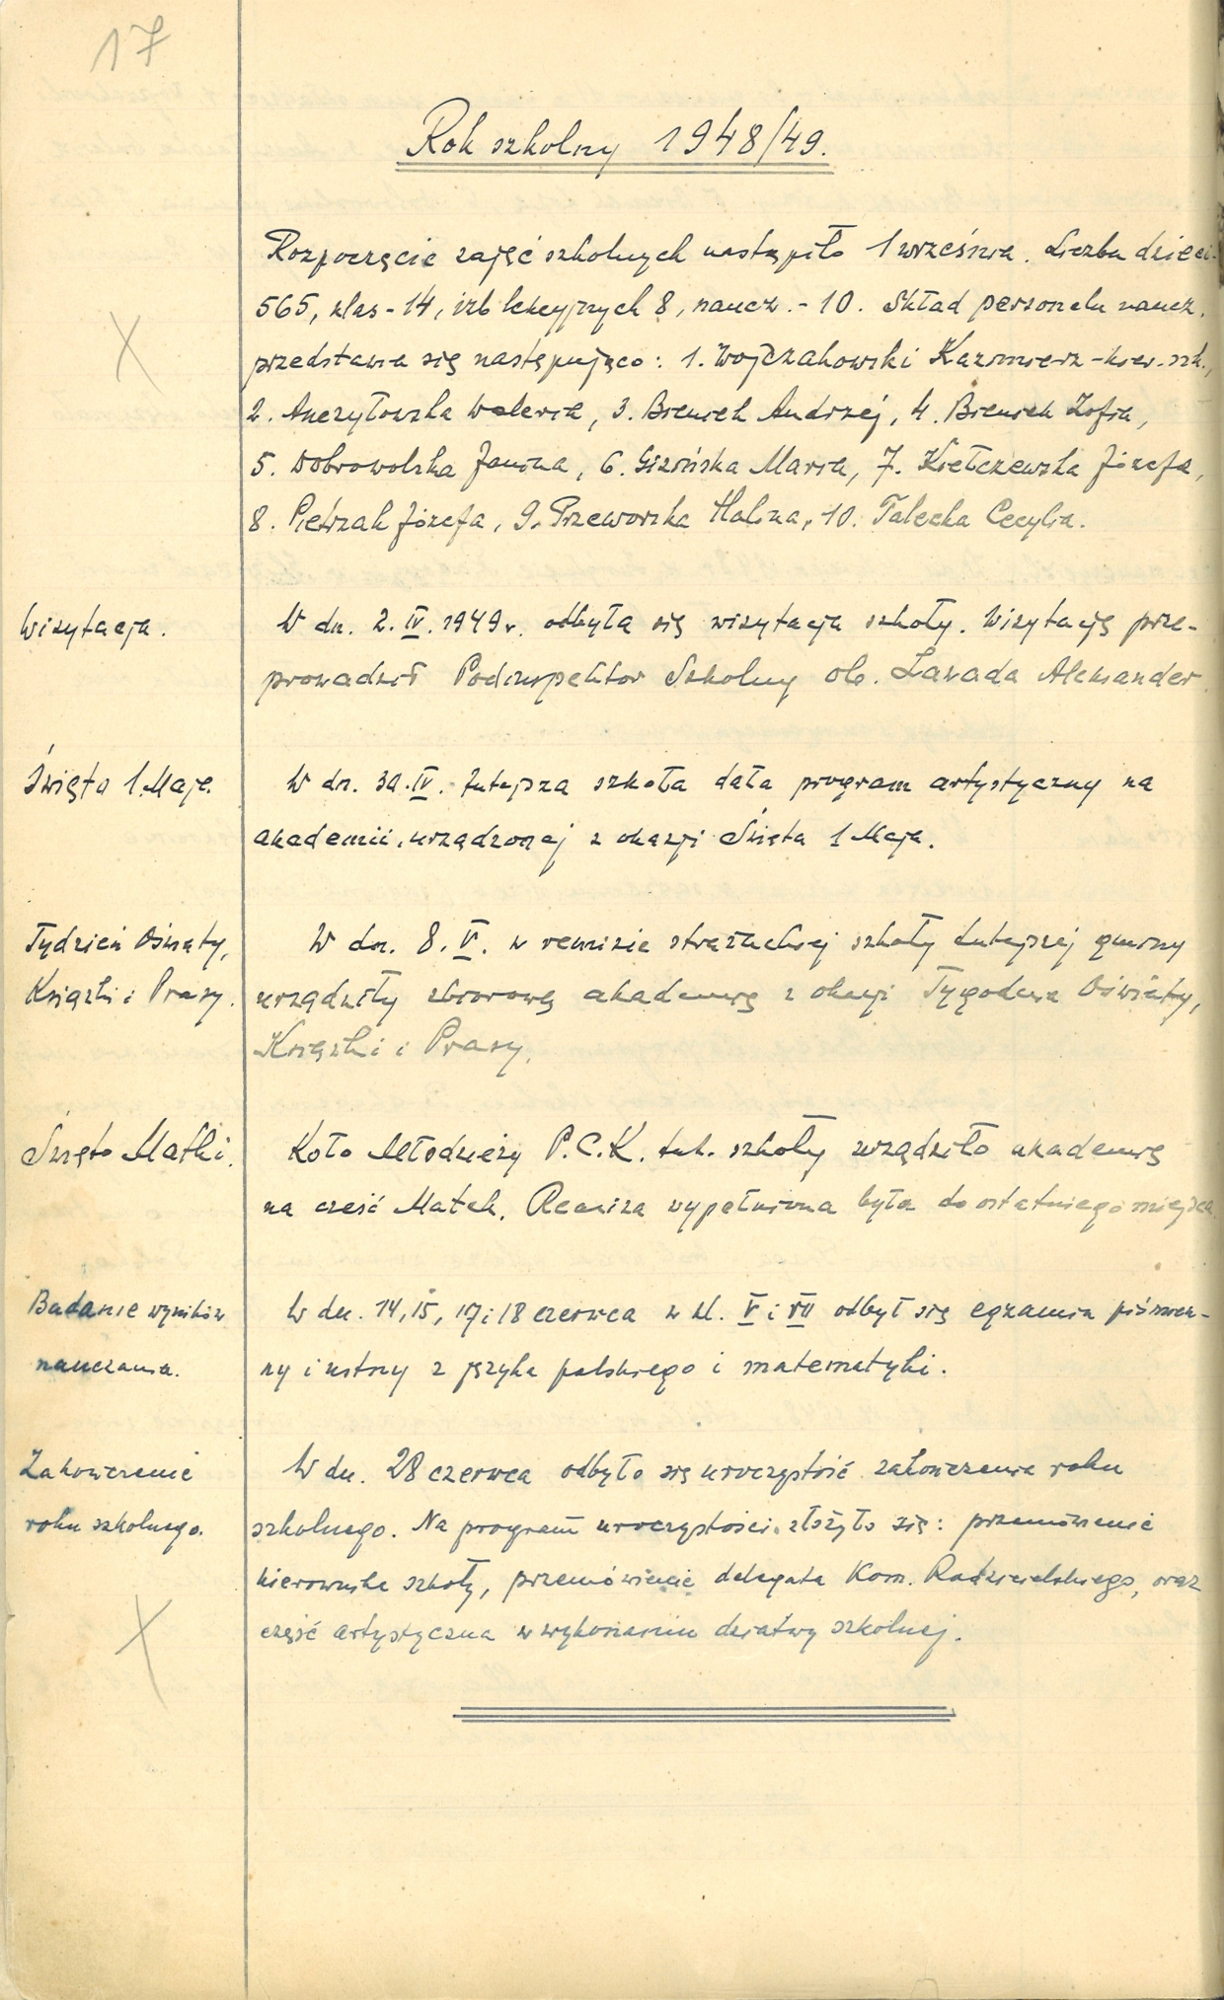 17
Rok szkolny 1948/49.
Rozpoczęcie zajęć szkolnych nastąpiło 1 września. Liczba dzieci -
565, klas - 14, izb lekcyjnych 8, naucz. - 10. Skład personelu naucz.
przedstawia się następująco: 1. Wojczakowski Kazimierz - kier. szk.,
2. Anczyłowska Waleria, 3. Bieniek Andrzej, 4. Bieniek Zofia,
5. Dobrowolska Janina, 6. Gizińska Maria, 7. Kiełczewska Józefa,
8. Pietrzak Józefa, 9. Przeworska Halina, 10. Talecka Cecylia.
Wizytacja.
W dn. 2. IV. 1949 r. odbyła się wizytacja szkoły. Wizytację prze-
prowadził Podinspektor Szkolny ob. Lawada Aleksander
Święto 1. Maja.
W dn. 30. IV. tutejsza szkoła dała program artystyczny na
akademii, urządzonej z okazji Święta 1 Maja.
Tydzień Oświaty,
Książki i Prasy.
W dn. 8. V. w remizie strażackiej szkoły tutejszej gminy
urządziły zbiorową akademię z okazji Tygodnia Oświaty,
Książki i Prasy.
Święto Matki.
Koło Młodzieży P.C.K. tut. szkoły urządziło akademię
na cześć Matek. Remiza wypełniona była do ostatniego miejsca
Badanie wyników
nauczania.
W dn. 14, 15, 17 i 18 czerwca w kl. V i VII odbył się egzamin piśmien-
ny i ustny z języka polskiego i matematyki.
Zakończenie
roku szkolnego.
W dn. 28 czerwca odbyło się uroczystość zakończenia roku
szkolnego. Na program uroczystości złożyło się: przemówienie
kierownika szkoły, przemówienie delegata Kom. Rodzicielskiego, oraz
część artystyczna w wykonaniu dziatwy szkolnej.